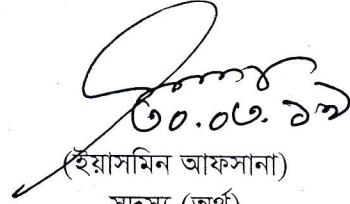 ৩০.০৩.১৯
(ইয়াসমিন আফসানা)
সদস্য (অর্থ)